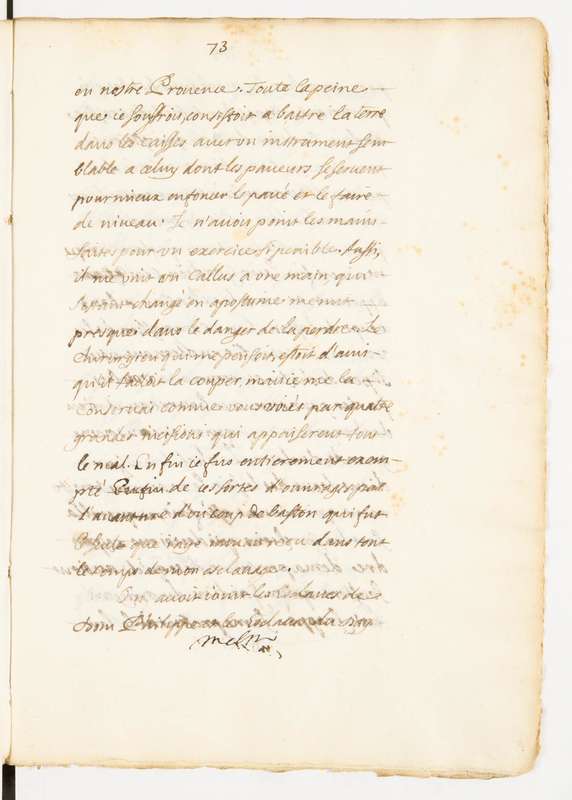 73
en nostre Prouence. Toute la peine
que ie souffrois, consistoit a battre la terre
dans les caisses auec vn instrument sem
blable a celuy dont les paueurs se seruent
pour mieux enfoncer le paué et le faire
de niueau. Je n'auois point les mains
faites pour vn exercice si penible. Aussi,
il me vint un Callus a vne main, qui
s'estant changé en apostume me mit
presque dans le danger de la perdre. Le
Chirurgien qui me pensoit, estoit d'auis
qu'il falloit la couper, mais ie me la
Conseruai comme vous voiés par quatre
grandes incisions qui appaiserent tout
le mal. Enfin ie fus entierement exem
pté de ces sortes d'ouurages par
l'auanture d'un coup de baston qui fut
le seul que i'aye iamais receu dans tout
le temps de mon esclauage.
On auoit ioint les Esclaues de
dom Philippe et les esclaues du